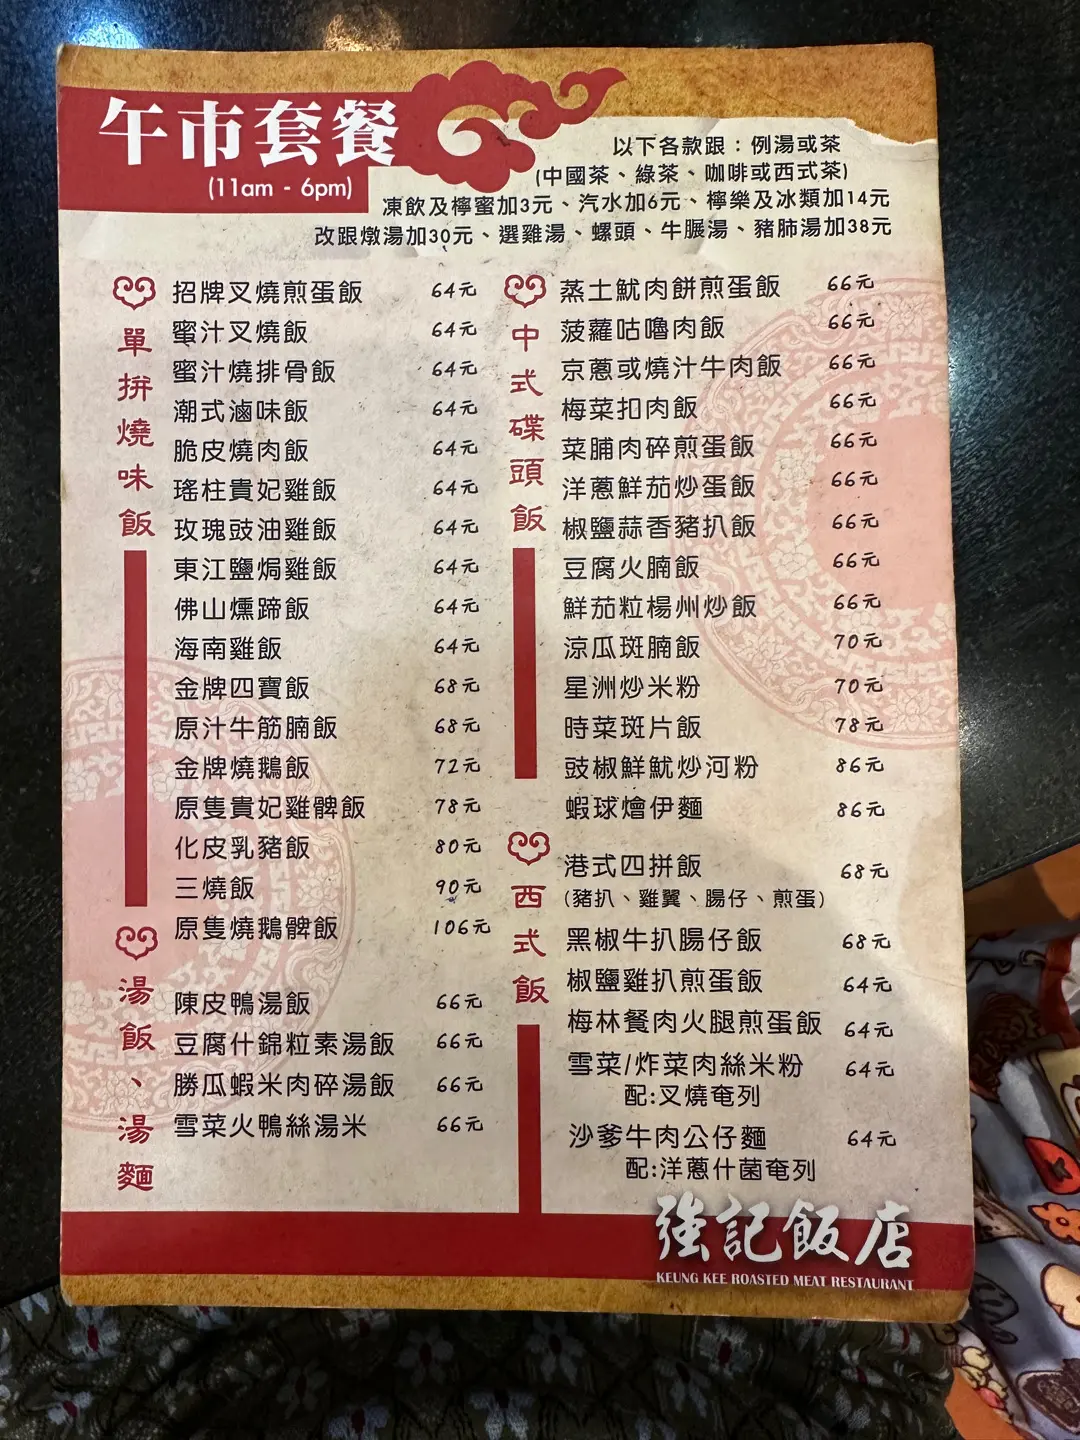 午市套餐
(11am - 6pm)
以下各款跟：例湯或茶
(中國茶、綠茶、咖啡或西式茶)
凍飲及檸蜜加3元、汽水加6元、檸樂及冰類加14元
改跟燉湯加30元、選雞湯、螺頭、牛𦟌湯、豬肺湯加38元
單拼燒味飯
招牌叉燒煎蛋飯 64元
蜜汁叉燒飯 64元
蜜汁燒排骨飯 64元
潮式滷味飯 64元
脆皮燒肉飯 64元
瑤柱貴妃雞飯 64元
玫瑰豉油雞飯 64元
東江鹽焗雞飯 64元
佛山燻蹄飯 64元
海南雞飯 64元
金牌四寶飯 68元
原汁牛筋腩飯 68元
金牌燒鵝飯 72元
原隻貴妃雞髀飯 78元
化皮乳豬飯 80元
三燒飯 90元
原隻燒鵝髀飯 106元
湯飯、湯麵
陳皮鴨湯飯 66元
豆腐什錦粒素湯飯 66元
勝瓜蝦米肉碎湯飯 66元
雪菜火鴨絲湯米 66元
中式碟頭飯
蒸土魷肉餅煎蛋飯 66元
菠蘿咕嚕肉飯 66元
京蔥或燒汁牛肉飯 66元
梅菜扣肉飯 66元
菜脯肉碎煎蛋飯 66元
洋蔥鮮茄炒蛋飯 66元
椒鹽蒜香豬扒飯 66元
豆腐火腩飯 66元
鮮茄粒楊州炒飯 66元
涼瓜斑腩飯 70元
星洲炒米粉 70元
時菜斑片飯 78元
豉椒鮮魷炒河粉 86元
蝦球燴伊麵 86元
西式飯
港式四拼飯 68元
(豬扒、雞翼、腸仔、煎蛋)
黑椒牛扒腸仔飯 68元
椒鹽雞扒煎蛋飯 64元
梅林餐肉火腿煎蛋飯 64元
雪菜/炸菜肉絲米粉 64元
配:叉燒奄列
沙爹牛肉公仔麵 64元
配:洋蔥什菌奄列
強記飯店
KEUNG KEE ROASTED MEAT RESTAURANT